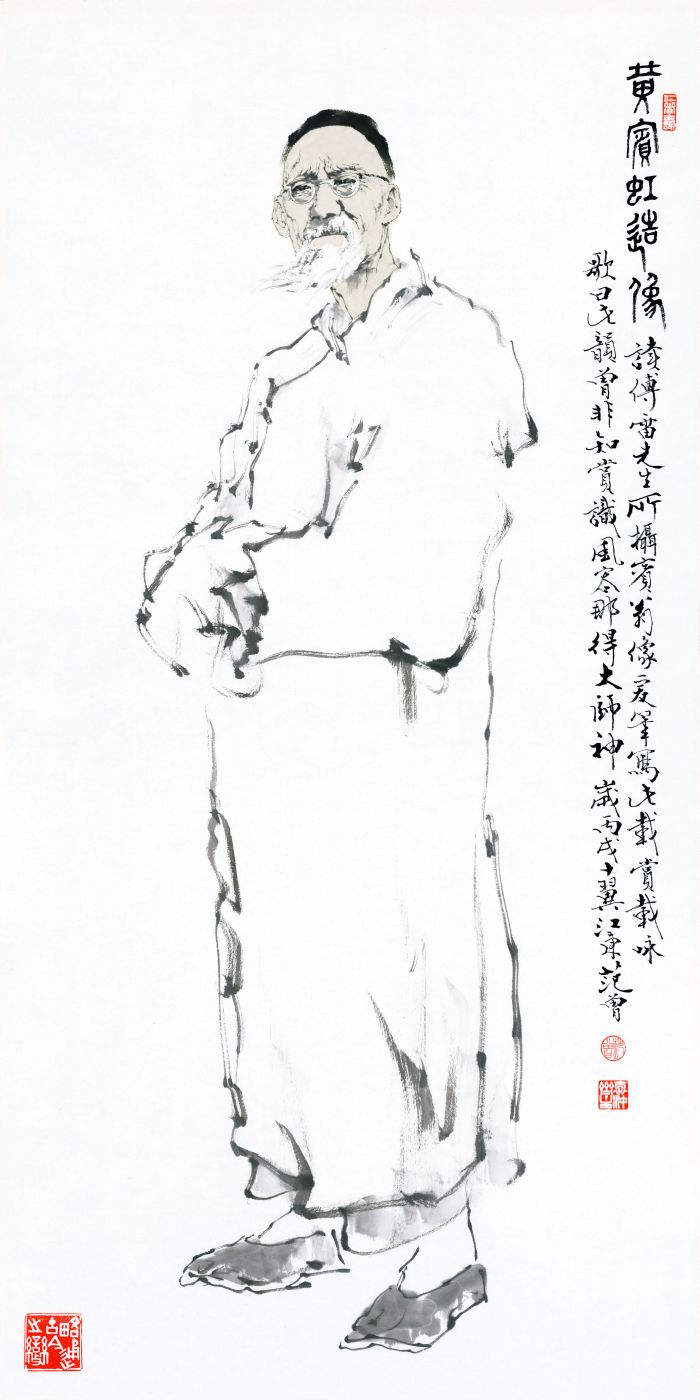 黄賓虹造像
讀傅雷先生所攝賓翁像爰筆寫此載賞載咏
歌曰此韻曾非知賞識風容那得大師神歲丙戌十翼江東范曾
略通古今之變